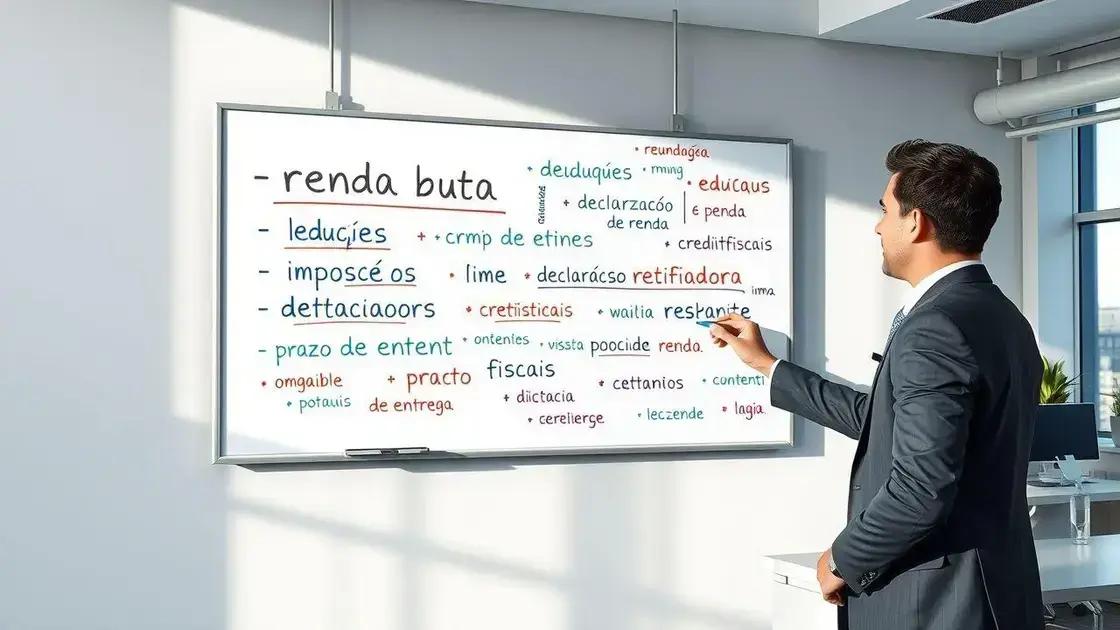 - renda buta
- leduçíes
- imposcé os
- dettaciaoors
- prazo de entent
• omgaible
• potauis
+ • crmp de etines
• lime
• cretiisticais
• ontentes
+ practo
de entrega
• reundagíca
• deıduqıues • rmıng
• educaus
+ declarzacóo
de renda
є penda
+ crediitfiscais
• declarácso retifiadora
irma
• wailia resranite
• vissta poocide renda.
fiscais
+ diictacia
• cereilierge
• cettanios
• contenti
• leczende
• lagia.